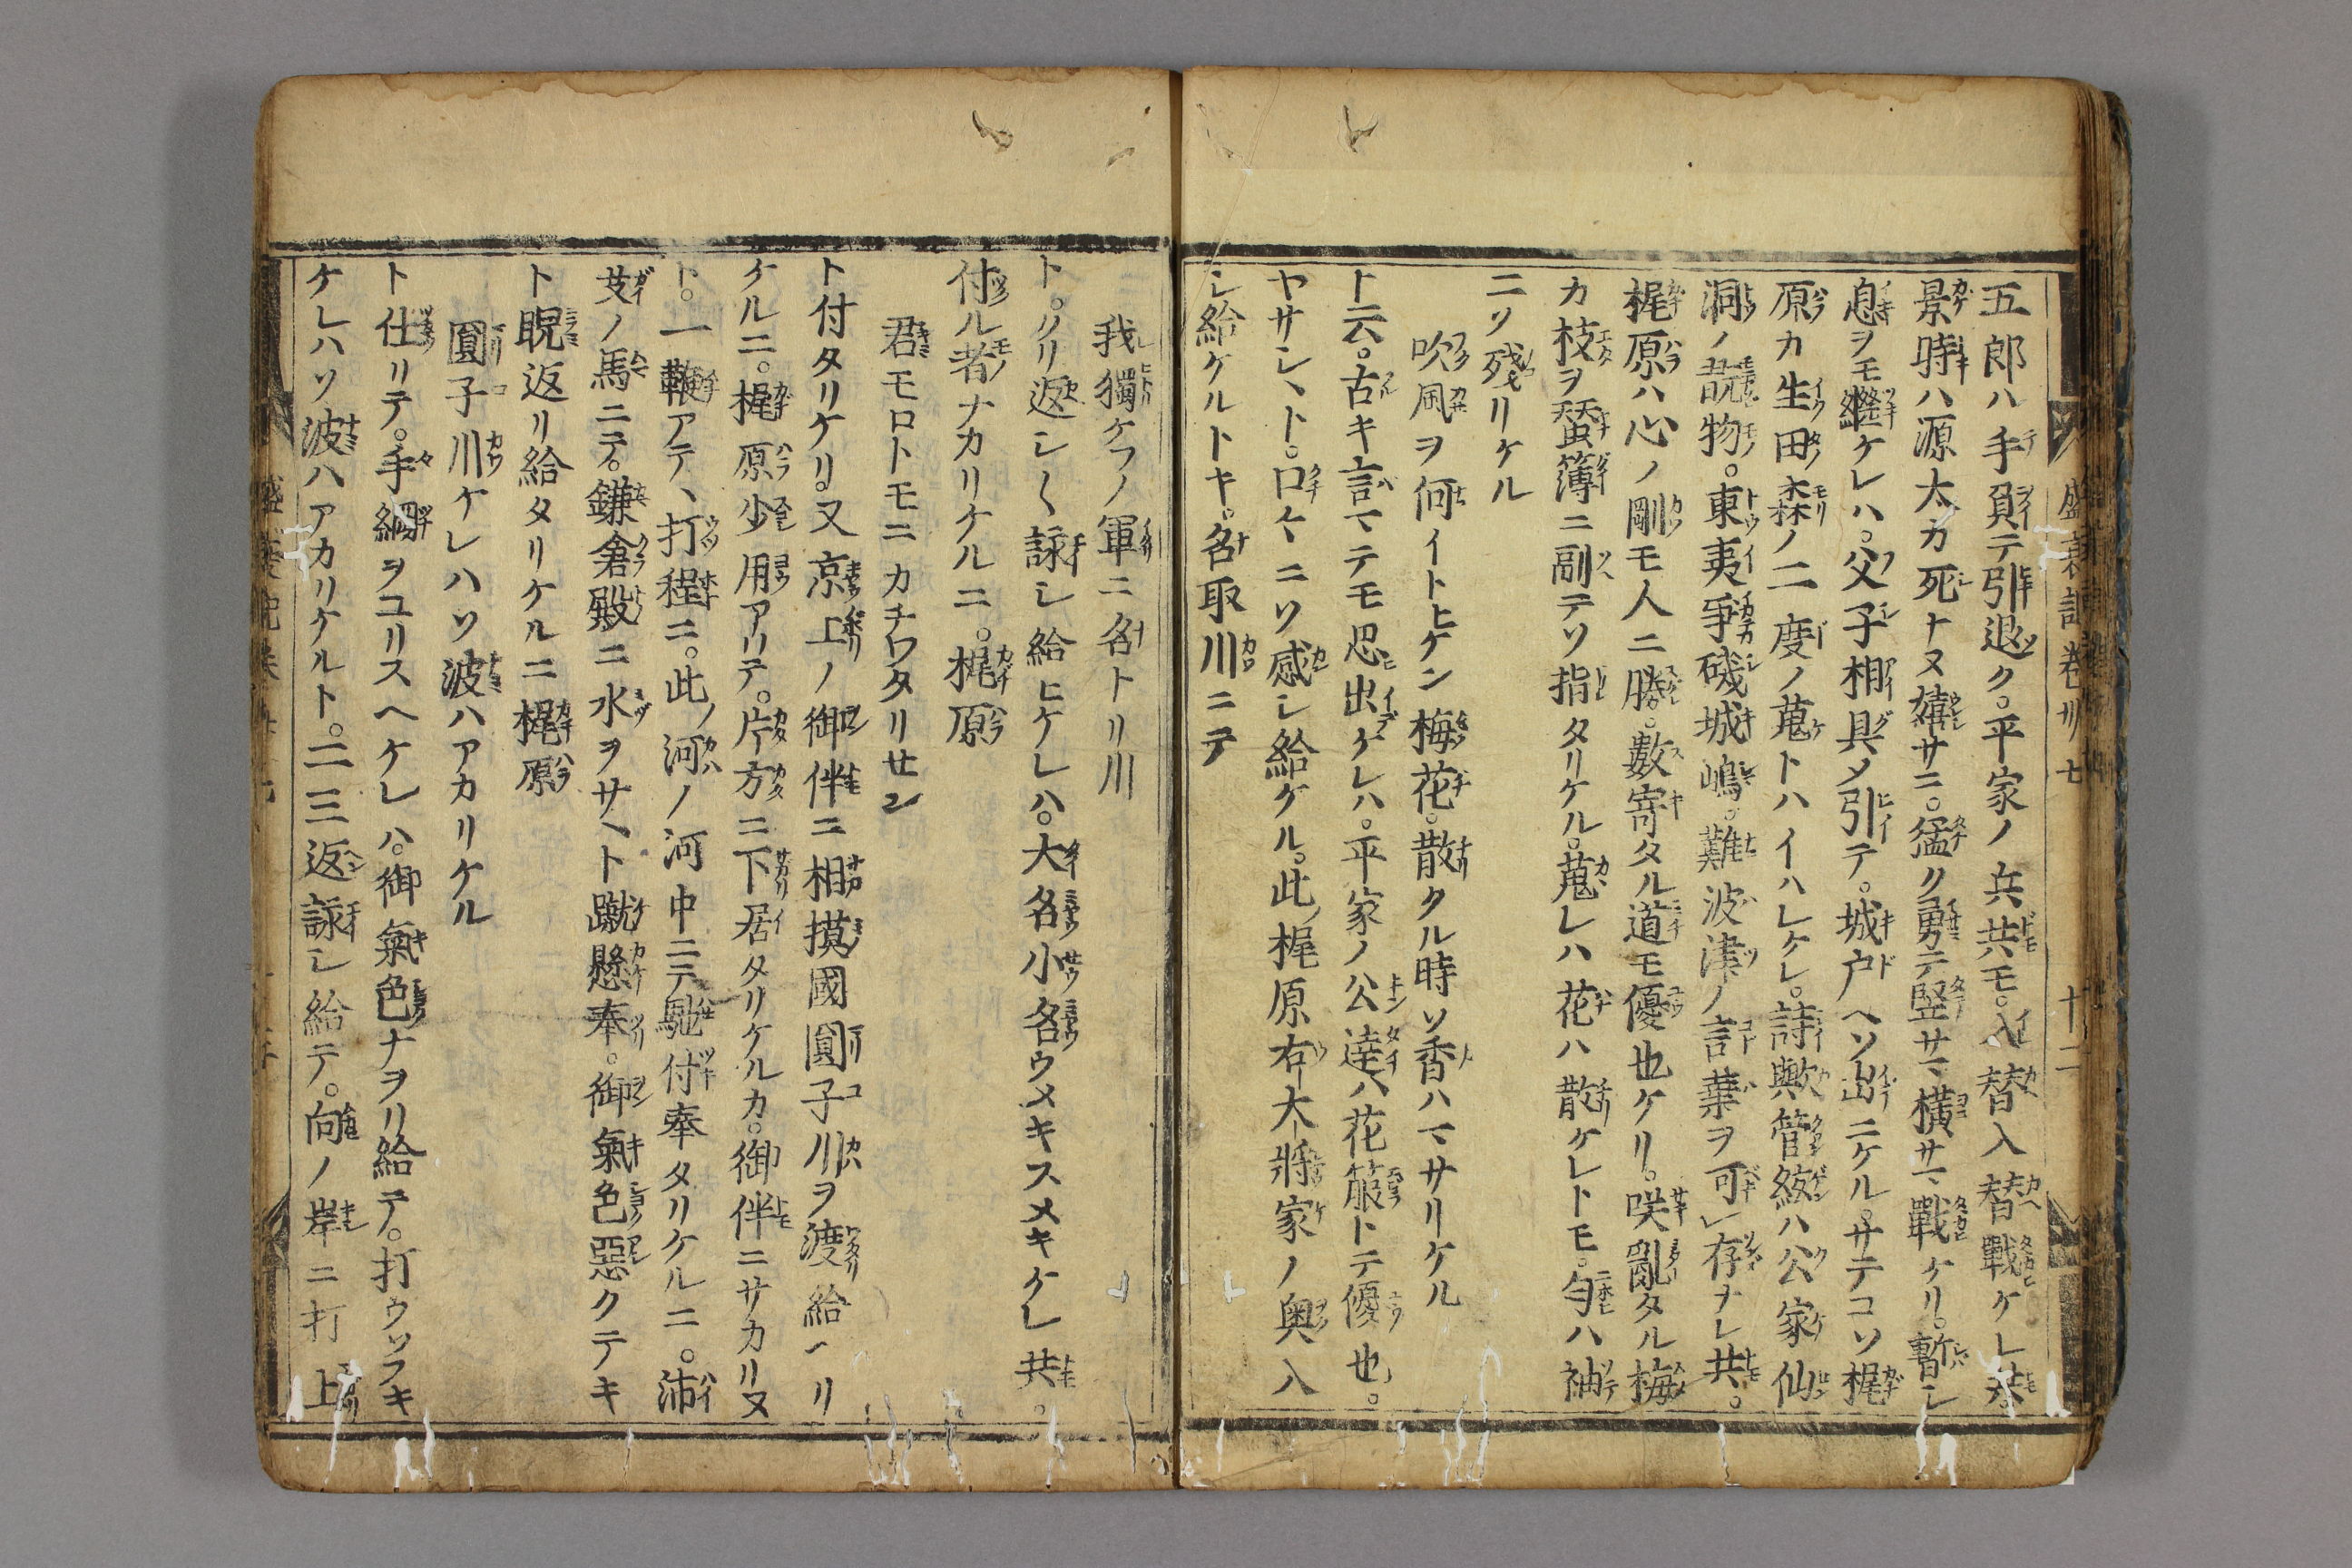 五郎ハ手負テ引退ク。平家ノ兵共モ。入替入替戰ケレ共
景時ハ源太カ死ナヌ嬉サニ。猛ク勇テ竪サマ横サマ戰ケリ。暫シ
息ヲモ繼ケレハ。父子相具メ引テ。城戸ヘソ出ニケル。サテコソ梶
原カ生田森ノ二度ノ蒐トハイハレケレ。詩歟管絃ハ公家仙
洞ノ翫物。東夷爭磯城嶋。難波津ノ言葉ヲ可存ナレ共。
梶原ハ心ノ剛モ人ニ勝。數寄タル道モ優也ケリ。咲亂タル梅
カ枝ヲ蠶簿ニ副テソ指タリケル。蒐レハ花ハ散ケレトモ。匂ハ袖
ニソ殘リケル
吹風ヲ何イトヒケン梅花。散クル時ソ香ハマサリケル
ト云。古キ言マテモ思出ケレハ。平家ノ公達ハ花箙トテ優也。
ヤサシヽト。口々ニソ感シ給ケル。此梶原右大將家ノ奥入
シ給ケルトキ。名取川ニテ
我獨ケフノ軍ニ名トリ川
ト。クリ返シ〱詠シ給ヒケレハ。大名小名ウメキスメキケレ共。
付ル者ナカリケルニ。梶原
君モロトモニカチワタリセン
ト付タリケリ。又京上ノ御伴ニ相摸國圓子川ヲ渡給ヘリ
ケルニ。梶原少用アリテ。片方ニ下居タリケルカ。御伴ニサカリヌ
ト。一鞭アテヽ打程ニ。此河ノ河中ニテ馳付奉タリケルニ。沛
艾ノ馬ニテ。鎌倉殿ニ水ヲサヽト蹴懸奉。御氣色惡クテキ
ト睨返リ給タリケルニ梶原
圓子川ケレハソ波ハアカリケル
ト仕リテ。手綱ヲユリスヘケレハ。御氣色ナヲリ給テ。打ウソフキ
ケレハソ波ハアカリケルト。二三返詠シ給テ。向ノ岸ニ打上